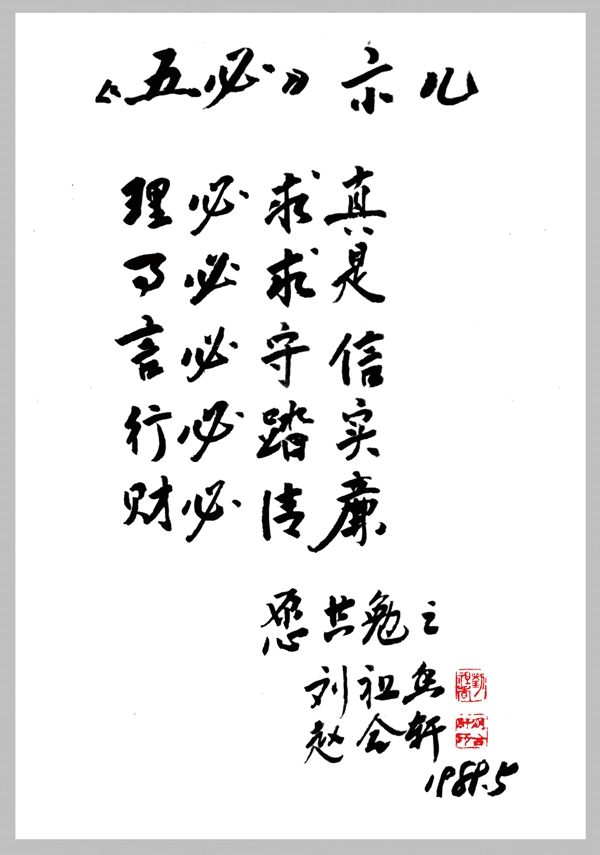 《五必》示儿
理必求真
事必求是
言必守信
行必踏实
财必清廉
愿共勉之
刘祖
赵 轩
1989.5